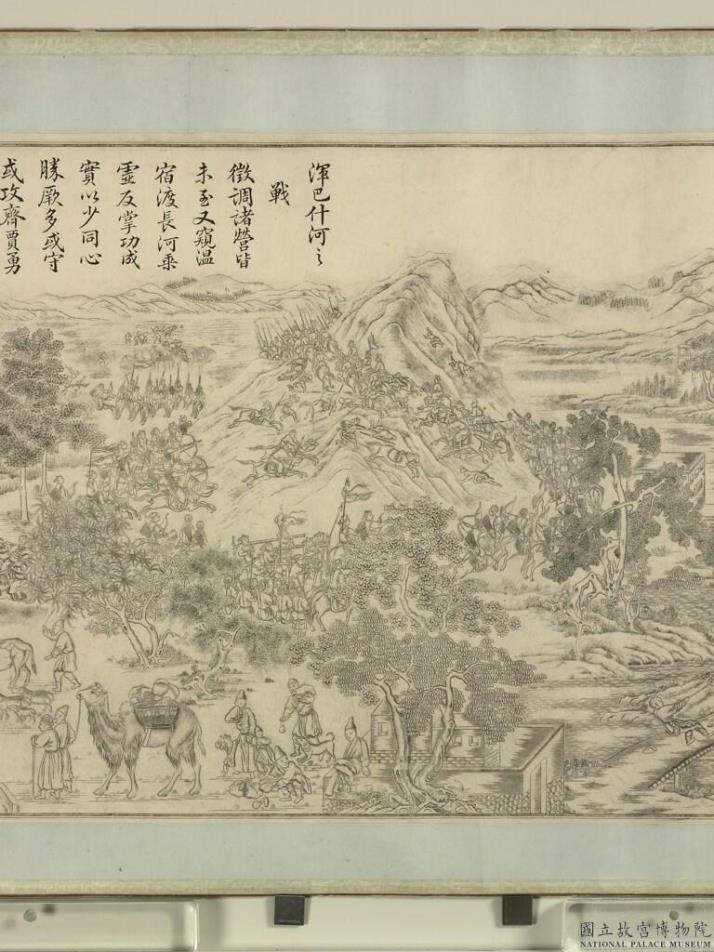 渾巴什河之
戰
徵調諸營皆
未至又窺温
宿渡長河乘
靈反掌功成
實以少同心
勝厥多或守
或攻齊賈勇
國立故宮博物院
NATIONAL PALACE MUSEUM